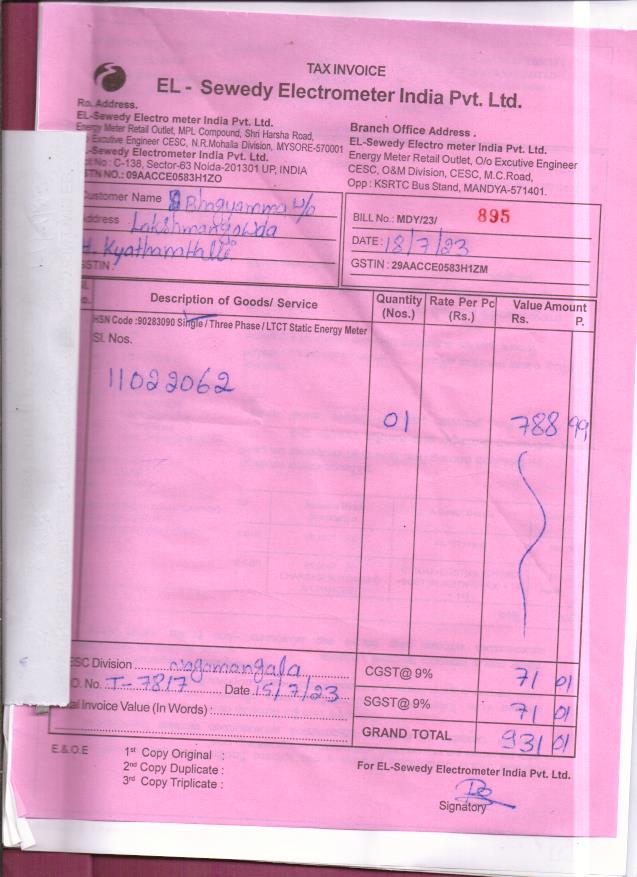 TAX INVOICE
EL - Sewedy Electrometer India Pvt. Ltd.
Ro. Address.
EL-Sewedy Electro meter India Pvt. Ltd.
Energy Meter Retail Outlet, MPL Compound, Shri Harsha Road,
o Excutive Engineer CESC, N.R.Mohalla Division, MYSORE-570001
L-Sewedy Electrometer India Pvt. Ltd.
ot No : C-138, Sector-63 Noida-201301 UP, INDIA
STN NO.: 09AACCE0583H1ZO
Branch Office Address .
EL-Sewedy Electro meter India Pvt. Ltd.
Energy Meter Retail Outlet, O/o Excutive Engineer
CESC, O&M Division, CESC, M.C.Road,
Opp : KSRTC Bus Stand, MANDYA-571401.
ustomer Name Bhagyamma w/o
ddress Lakshmangowda
H. Kyathanahalli
GSTIN :
BILL No.: MDY/23/ 895
DATE : 18/7/23
GSTIN : 29AACCE0583H1ZM
Description of Goods/ Service
Quantity (Nos.)
Rate Per Pc (Rs.)
Value Amount
Rs. P.
HSN Code :90283090 Single / Three Phase / LTCT Static Energy Meter
Sl. Nos.
11022062
01 788 99
ESC Division Nagamangala
O. No. T-7817 Date 15/7/23
al Invoice Value (In Words) :
CGST@ 9% 71 01
SGST@ 9% 71 01
GRAND TOTAL 931 01
E.& O.E
1st Copy Original :
2nd Copy Duplicate :
3rd Copy Triplicate :
For EL-Sewedy Electrometer India Pvt. Ltd.
Signatory